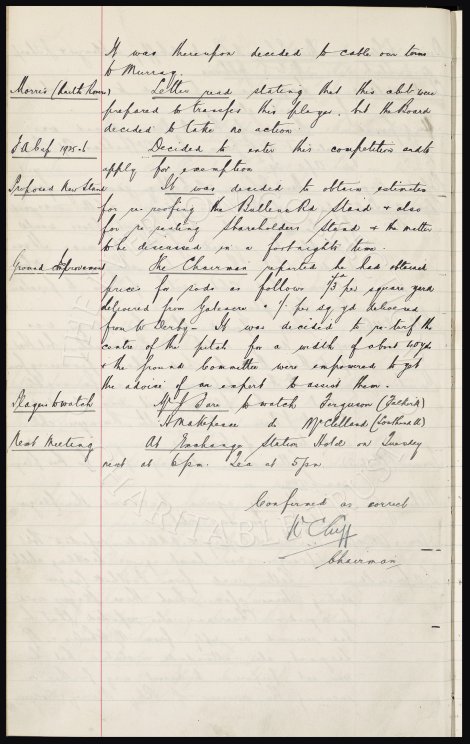 It was thereupon decided to cable our terms
to Murray.
Morris (Raith Rovers) Letter read stating that this club were
prepared to transfer this player, but the Board
decided to take no action.
F A Cup 1925-6 Decided to enter this competition and to
apply for exemption
Proposed New Stand It was decided to obtain estimates
for re-roofing the Bullens Rd Stand & also
for re seating Shareholders Stand & the matter
to be discussed in a fortnights time.
Ground Improvement The Chairman reported he had obtained
prices for sods as follows 1/3 per square yard
delivered from Gateacre & 1/- per sq yd delivered
from W Derby - It was decided to re-turf the
centre of the pitch for a width of about 40 yds
& the Ground Committee were empowered to get
the advice of an expert to assist them.
Players to watch Mr J to watch Ferguson (Falkirk)
A Makepeace do McClelland (Southend)
Next Meeting At Exchange Station Hotel on Tuesday
next at 6pm. Tea at 5pm
Confirmed as correct
W C Cuff
Chairman
CHARITABLE